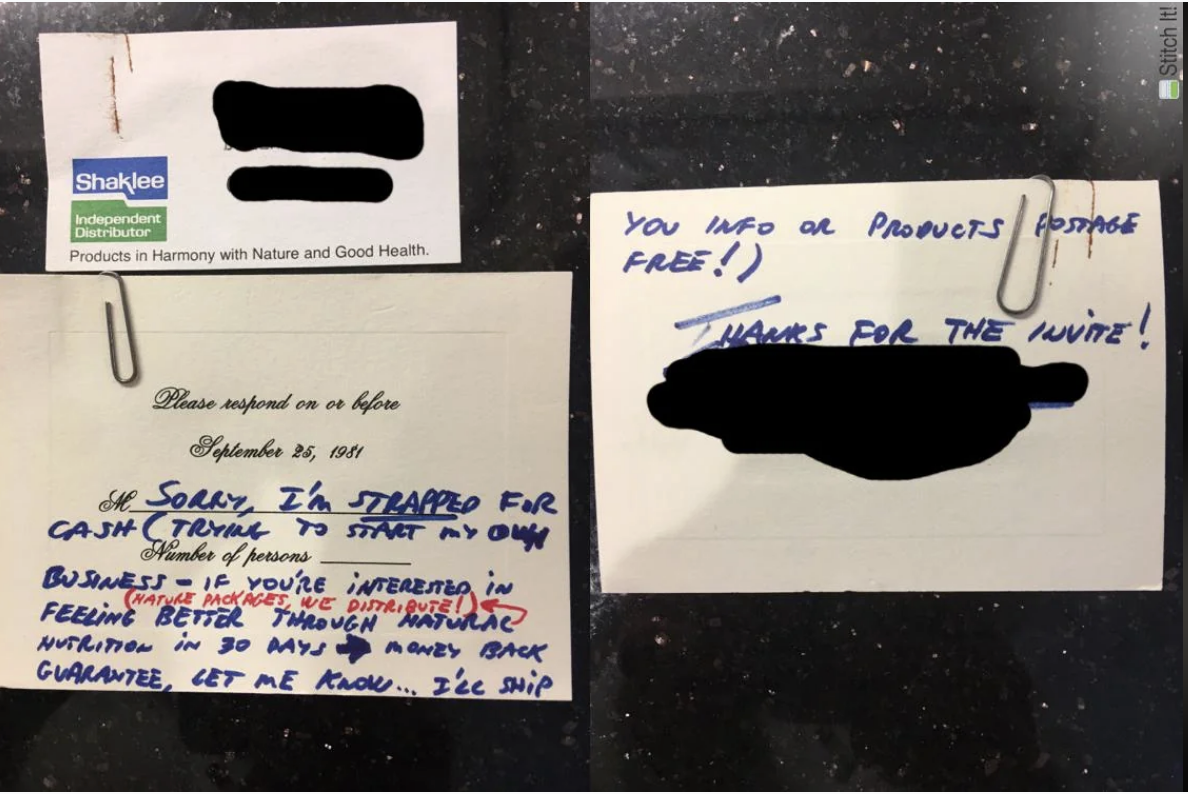 Shaklee
Independent
Distributor
Products in Harmony with Nature and Good Health.
Please respond on or before
September 25, 1981
M SORRY, I'M STRAPPED FOR
CASH (TRYING TO START MY OWN
Number of persons
BUSINESS - IF YOU'RE INTERESTED IN
(NATURE PACKAGES, WE DISTRIBUTE!)
FEELING BETTER THROUGH NATURAL
NUTRITION IN 30 DAYS → MONEY BACK
GUARANTEE, LET ME KNOW... I'LL SHIP
YOU INFO OR PRODUCTS POSTAGE
FREE!)
THANKS FOR THE INVITE!
Stitch It!